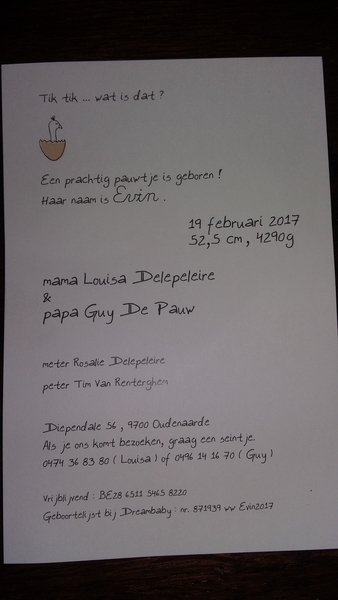 Tik tik ... wat is dat?
Een prachtig pauwtje is geboren!
Haar naam is Evin.
19 februari 2017
52,5 cm, 4290g
mama Louisa Delepeleire
&
papa Guy De Pauw
meter Rosalie Delepeleire
peter Tim Van Renterghem
Diependale 56, 9700 Oudenaarde
Als je ons komt bezoeken, graag een seintje
0474 36 83 80 (Louisa) of 0496 14 16 70 (Guy)
Vrijblijvend: BE28 6511 5465 8220
Geboortelijst bij Dreambaby: nr. 871939 ww Evin2017